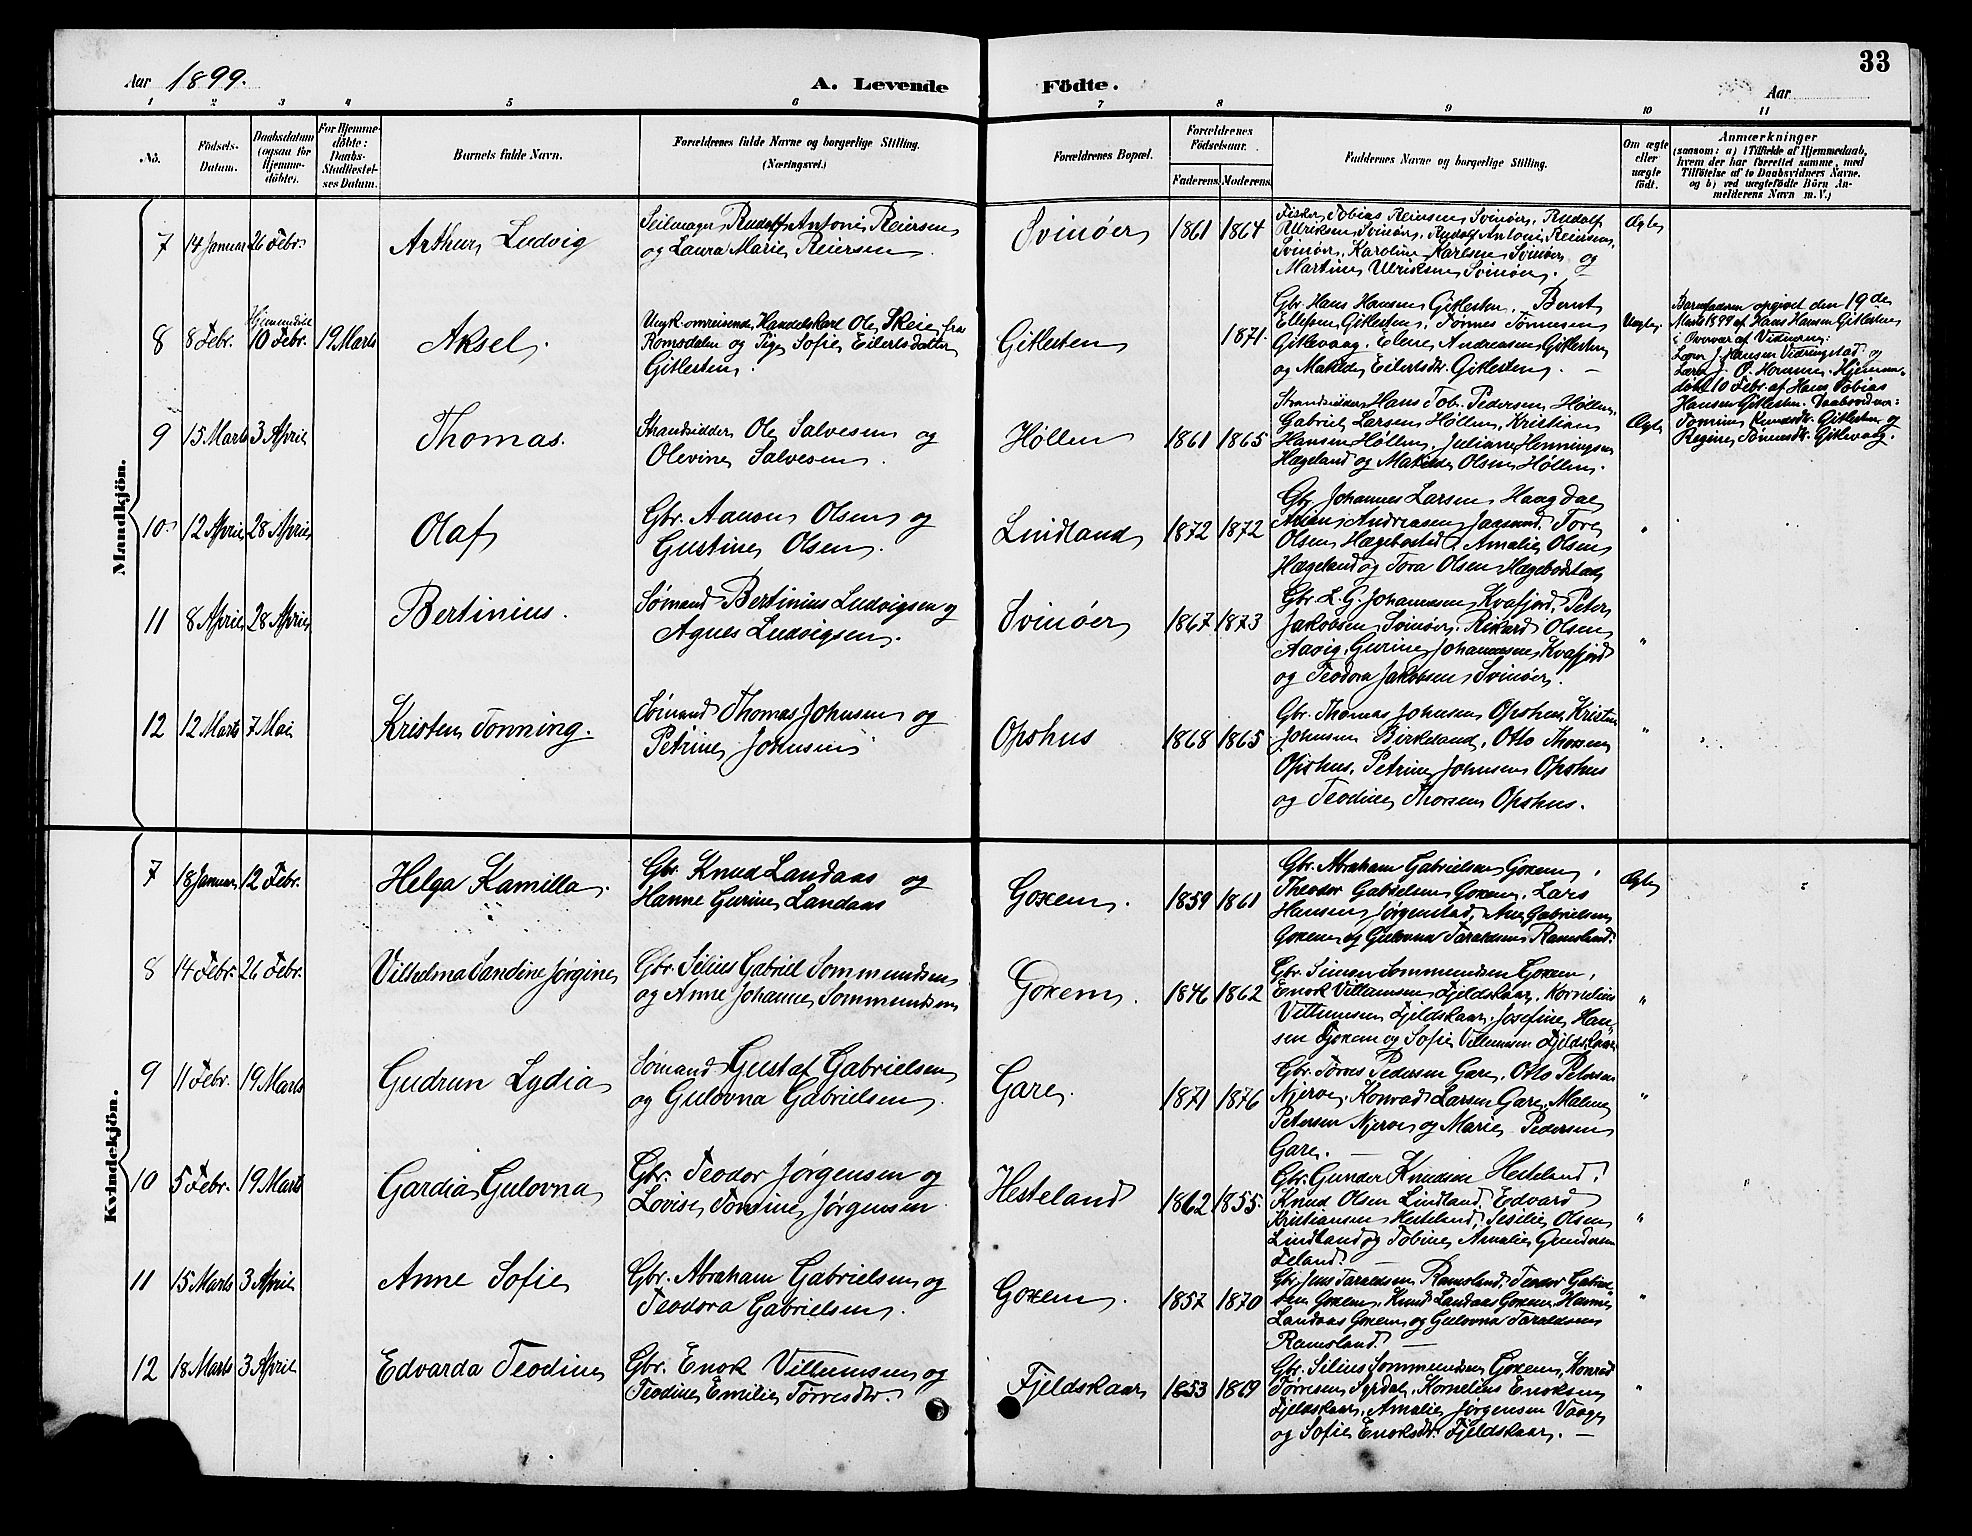 33
Aar 1899.
A. Levende Födte.
Aar
1 2 3 4 5 6 7 8 9 10 11
No.
Födsels-Datum.
Daabsdatum (ogsaa for Hjemme-döbte).
For Hjemme-döbte: Daabs-Stadfæstel-ses Datum.
Barnets fulde Navn.
Forældrenes fulde Navne og borgerlige Stilling. (Næringsvei.)
Forældrenes Bopæl.
Forældrenes Födselsaar.
Faderens. Moderens.
Faddernes Navne og borgerlige Stilling.
Om ægte eller uægte födt.
Anmærkninger
(saasom: a) i Tilfælde af Hjemmedaab,
hvem der har forrettet samme, med
Tilföielse af to Daabsvidners Navne.
og b) ved uægtefödte Börn An-
melderens Navn m. V.)
Mandkjön.
7 14 Januar 26 Febr Arthur Ludvig
Seilmager Rudolf Antoni Reiersen
og Laura Marie Reiersen.
Svinøer 1861 1864
Fisker Tobias Reiersen Svinøer, Rudolf
Ulriksen Svinøer, Rudolf Antoni Reiersen
Svinøer, Karoline Karlsen Svinøer og
Martine Ulriksen Svinøer.
Ægte
8 8 Febr. Hjemmedöbt 10 Febr. 19 Marts Aksel.
Ungk. omreisende Handelskarl Ole Skeie fra
Romsdalen og Pige Sofie Eilertsdatter
Gitlesten.
Gitlesten 1871.
Gbr. Hans Hansen Gitlesten, Bernt
Ellefsen Gitlesten, Tønnes Tønnesen
Gitlevaag, Elene Andreasen Gitlesten
og Matilde Eilertsdtr. Gitlesten.
Uægte.
Barnefaderen opgivet den 19de
Marts 1899 af Hans Hansen Gitlesten
i Overvær af Vidnerne:
J. Hansen Vidringstad og
Lærer J. O.
døbt 10 Febr. af Hans Tobias
Hansen Gitlesten. Daabsvidner:
Tomine Knudsdtr. Gitlesten og
Regine Tønnesdtr. Gitlevaag.
9 15 Marts 3 April Thomas.
Strandsidder Ole Salvesen og
Olevine Salvesen.
Høllen 1861 1865
Strandsidder Hans Tob. Pedersen Høllen,
Gabriel Larsen Høllen, Kristian
Hansen Høllen, Juliane Henningsen
Hægeland og Matilde Olsen Høllen.
Ægte
10 12 April 28 April Olaf
Gbr. Aanon Olsen og
Gustine Olsen.
Lindland 1872 1872
Gbr. Johannes Larsen Haagdal
Andreasen Jaasund, Tore
Olsen Hægebostad, Amalie Olsen
Hægeland og Tora Olsen Hægebostad
"
11 8 April 28 April Bertinius.
Sømand Bertinius Ludvigsen og
Agnes Ludvigsen.
Svinøer 1867 1873
Gbr. L. G. Johannesen Kvafjord, Peter
Jakobsen Svinøer, Rikard Olsen
Aavig, Gurine Johannesen Kvafjord
og Teodora Jakobsen Svinøer.
"
12 12 Marts 7 Mai Kristen Tonning.
Sømand Thomas Johnsen og
Petrine Johnsen
Opshus 1868 1865
Gbr. Thomas Johnsen Opshus, Kristen
Johnsen Birkeland, Otto Thorsen
Opshus, Petrine Johnsen Opshus
og Teodine Thorsen Opshus.
"
Kvindekjön.
7 18 Januar 12 Febr. Helga Kamilla.
Gbr. Knud Landaas og
Hanne Gurine Landaas
Goxem. 1859 1861
Gbr. Abraham Gabrielsen Goxem,
Theodor Gabrielsen Goxem, Lars
Hansen Jørgenstad, Ane Gabrielsen
Goxem og Gulovna Taraldsen Ramsland.
Ægte
8 14 Febr. 26 Febr. Vilhelma Tandine Jørgine
Gbr. Silius Gabriel Sommundsen
og Anne Johanne Sommundsen
Goxem. 1846 1862
Gbr. Simon Sommundsen Goxem,
Enok Villumsen Fjeldskaar, Kornelius
Villumsen Fjeldskaar, Josefine Han-
sen Goxem og Sofie Villumsen Fjeldskaar
"
9 11 Febr. 19 Marts Gudrun Lydia
Sømand Gustaf Gabrielsen
og Gulovna Gabrielsen.
Gare. 1871 1876
Gbr. Torres Pedersen Gare, Otto Petersen
Njerve, Konrad Larsen Gare, Malene
Petersen Njerve og Marie Pedersen
Gare.
"
10 5 Febr. 19 Marts Gardia Gulovna
Gbr. Teodor Jørgensen og
Lovise Tomine Jørgensen
Hesteland 1862 1855.
Gbr. Gunder Knudsen Hesteland,
Knud Olsen Lindland, Edvard
Kristiansen Hesteland, Sesilie Olsen
Lindland og Tobine Amalie Gundersen
"
11 15 Marts 3 April Anne Sofie
Gbr. Abraham Gabrielsen og
Teodora Gabrielsen.
Goxem. 1857 1870
Gbr. Jens Taraldsen Ramsland, Teodor Gabriel-
sen Goxem, Knud Landaas Goxem, Hanne
Landaas Goxem og Gulovna Taraldsen
Ramsland.
"
12 18 Marts 3 April Edvarda Teodine
Gbr. Enok Villumsen og
Teodine Emilie Torresdtr.
Fjeldskaar 1853 1869
Gbr. Silius Sommundsen Goxem, Konrad
Torresen Syrdal, Kornelius Enoksen
Fjeldskaar, Amalie Jørgensen Vaage
og Sofie Enoksdtr. Fjeldskaar.
"